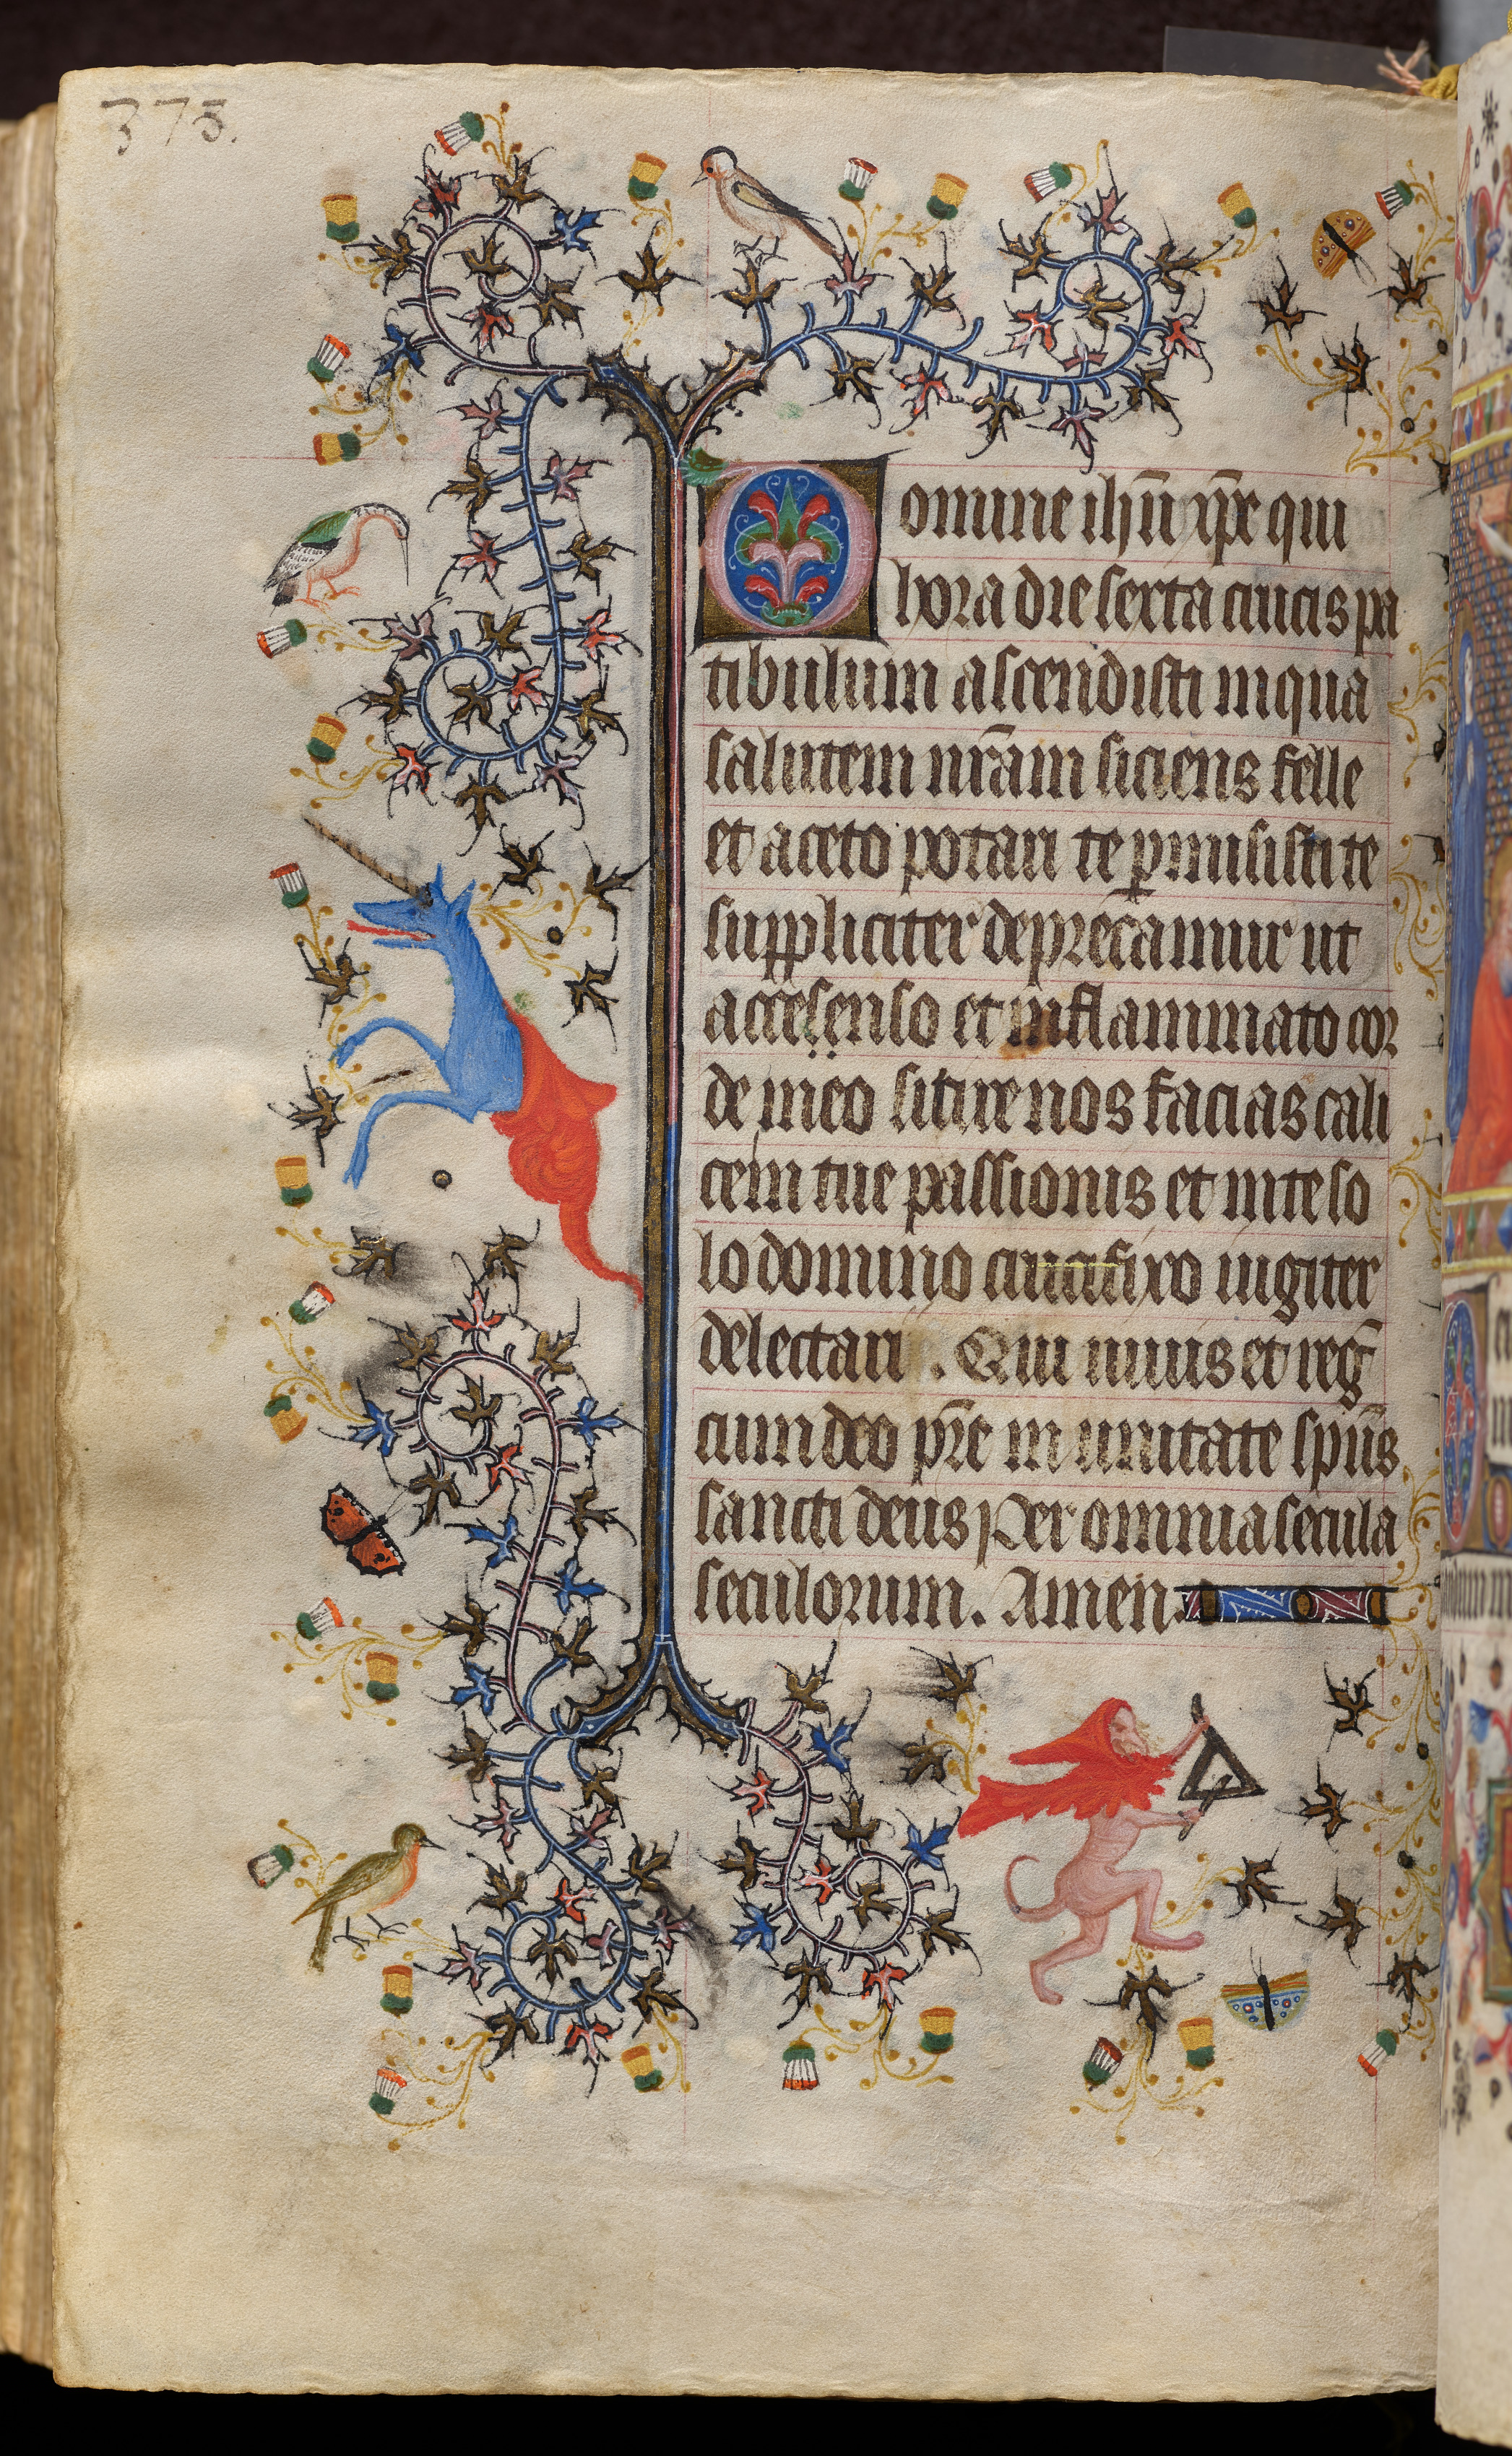 375.
Domine ihū xp̄e qui
hora die sexta crucis pa
tibulum ascendisti inqua
salutem nr̄am siciens felle
et aceto potari te ꝑmisisti te
suppliciter deprecamur ut
accesenso et inflammato cor
de meo sitire nos facias cali
cem tue passionis et in te so
lo domino crucifixo iugiter
delectari. Qui uiuis et reḡ
cum deo pr̄e in unitate sp̄us
sancti deus Per omnia secula
seculorum. Amen.